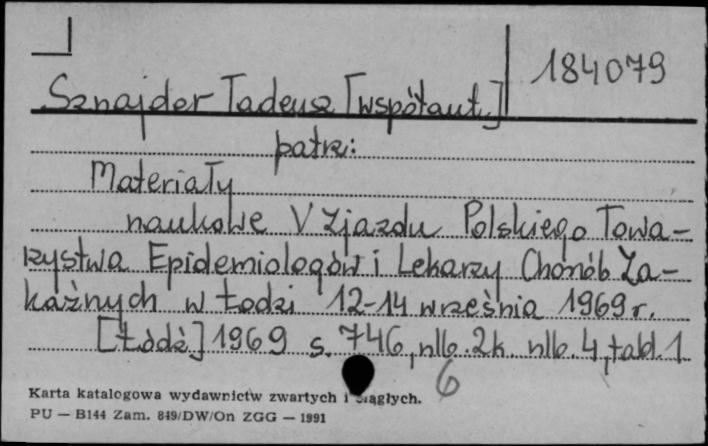 184079
Sznajder Tadeusz [współaut.]
patrz:
Materiały
naukowe V Zjazdu Polskiego Towa-
rzystwa Epidemiologów i Lekarzy Chorób Za-
kaźnych w Łodzi 12-14 września 1969 r.
[Łódź] 1969 s. 746, nlb. 2 k. nlb. 4, tabl. 1
6
Karta katalogowa wydawnictw zwartych i ciągłych.
PU — B144 Zam. 849/DW/On ZGG — 1991